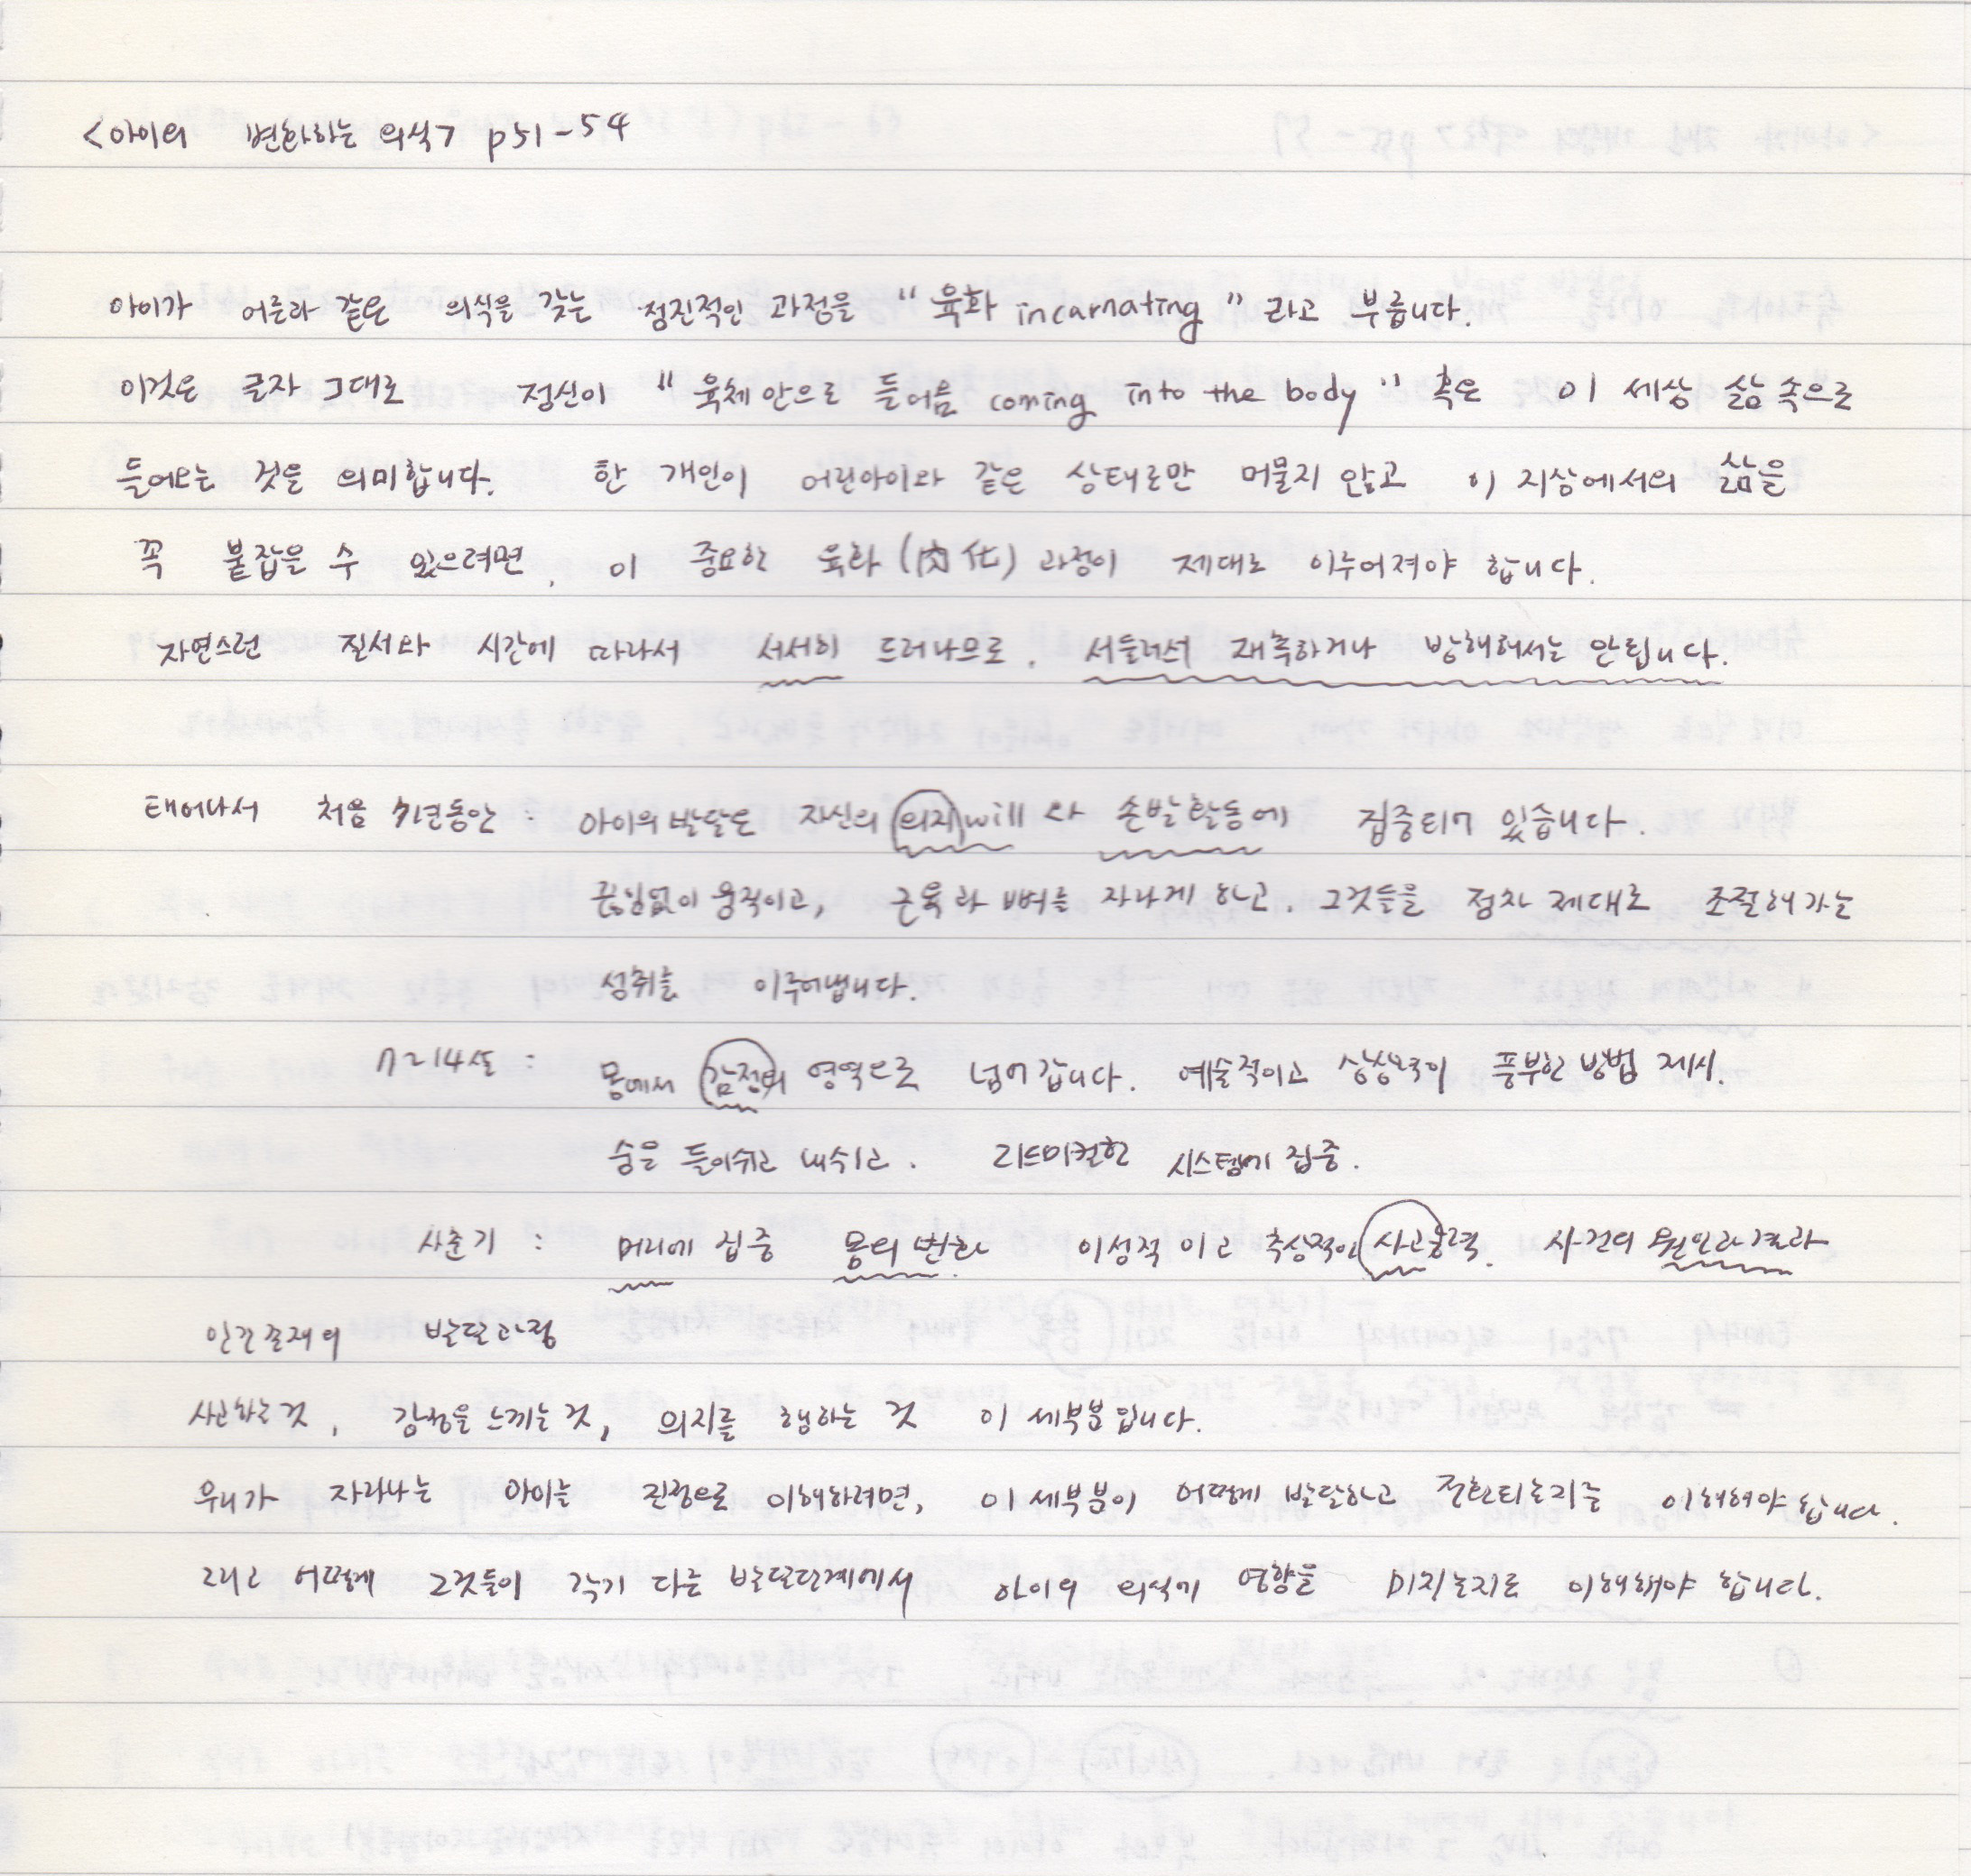 <아이의 변화하는 의식> p51-54
아이가 어른과 같은 의식을 갖는 점진적인 과정을 "육화 incarnating" 라고 부릅니다.
이것은 글자 그대로 정신이 "육체 안으로 들어옴 coming into the body" 혹은 이 세상 삶 속으로
들어오는 것을 의미합니다. 한 개인이 어린아이와 같은 상태로만 머물지 않고 이 지상에서의 삶을
꼭 붙잡을 수 있으려면, 이 중요한 육화(肉化) 과정이 제대로 이루어져야 합니다.
자연스런 질서와 시간에 따라서 서서히 드러나므로, 서둘러서 재촉하거나 방해해서는 안됩니다.
태어나서 처음 7년동안 : 아이의 발달은 자신의 의지will 와 손발활동에 집중되어 있습니다.
끊임없이 움직이고, 근육과 뼈를 자라게 하고, 그것들을 점차 제대로 조절해가는
성취를 이루어냅니다.
7~14살 : 몸에서 감정의 영역으로 넘어갑니다. 예술적이고 상상력이 풍부한 방법 제시.
숨을 들이쉬고 내쉬고. 리드미컬한 시스템에 집중.
사춘기 : 머리에 집중 몸의 변화 이성적이고 추상적인 사고능력. 사건의 원인과 결과
인간존재의 발달과정
사고하는 것, 감정을 느끼는 것, 의지를 행하는 것 이 세부분입니다.
우리가 자라나는 아이를 진정으로 이해하려면, 이 세부분이 어떻게 발달하고 전환되는지를 이해해야 합니다.
그리고 어떻게 그것들이 각기 다른 발달단계에서 아이의 의식에 영향을 미치는지를 이해해야 합니다.